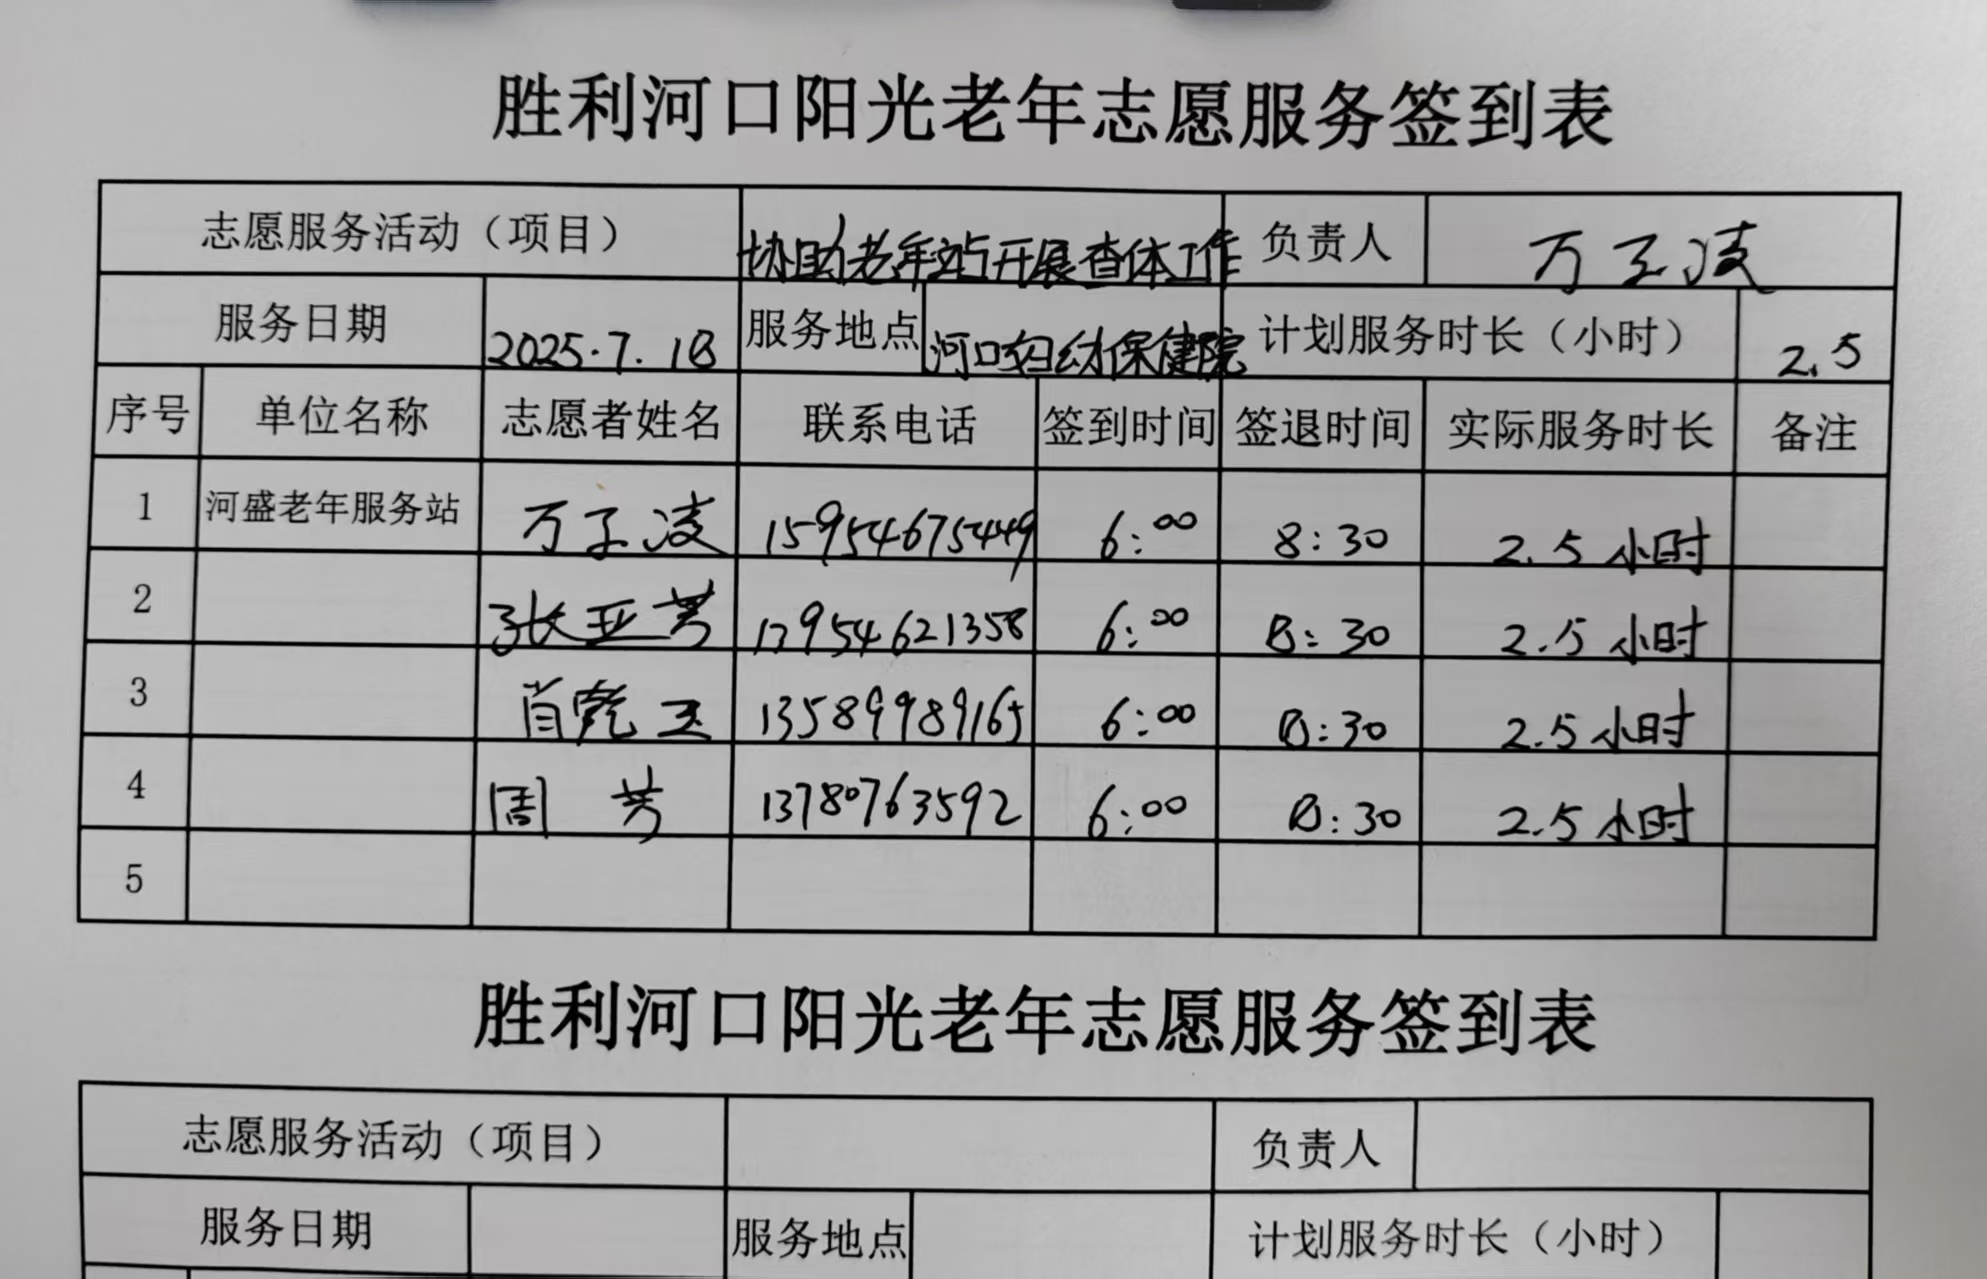 胜利河口阳光老年志愿服务签到表
志愿服务活动（项目） 协助老年站开展查体工作 负责人 万子凌
服务日期 2025.7.1日 服务地点 河口妇幼保健院 计划服务时长（小时） 2.5
序号 单位名称 志愿者姓名 联系电话 签到时间 签退时间 实际服务时长 备注
1 河盛老年服务站 万子凌 15954675449 6:00 8:30 2.5小时
2 张亚芳 6:00 8:30 2.5小时
3 肖乾玉 13589989165 6:00 8:30 2.5小时
4 周芳 13780763592 6:00 8:30 2.5小时
5
胜利河口阳光老年志愿服务签到表
志愿服务活动（项目） 负责人
服务日期 服务地点 计划服务时长（小时）